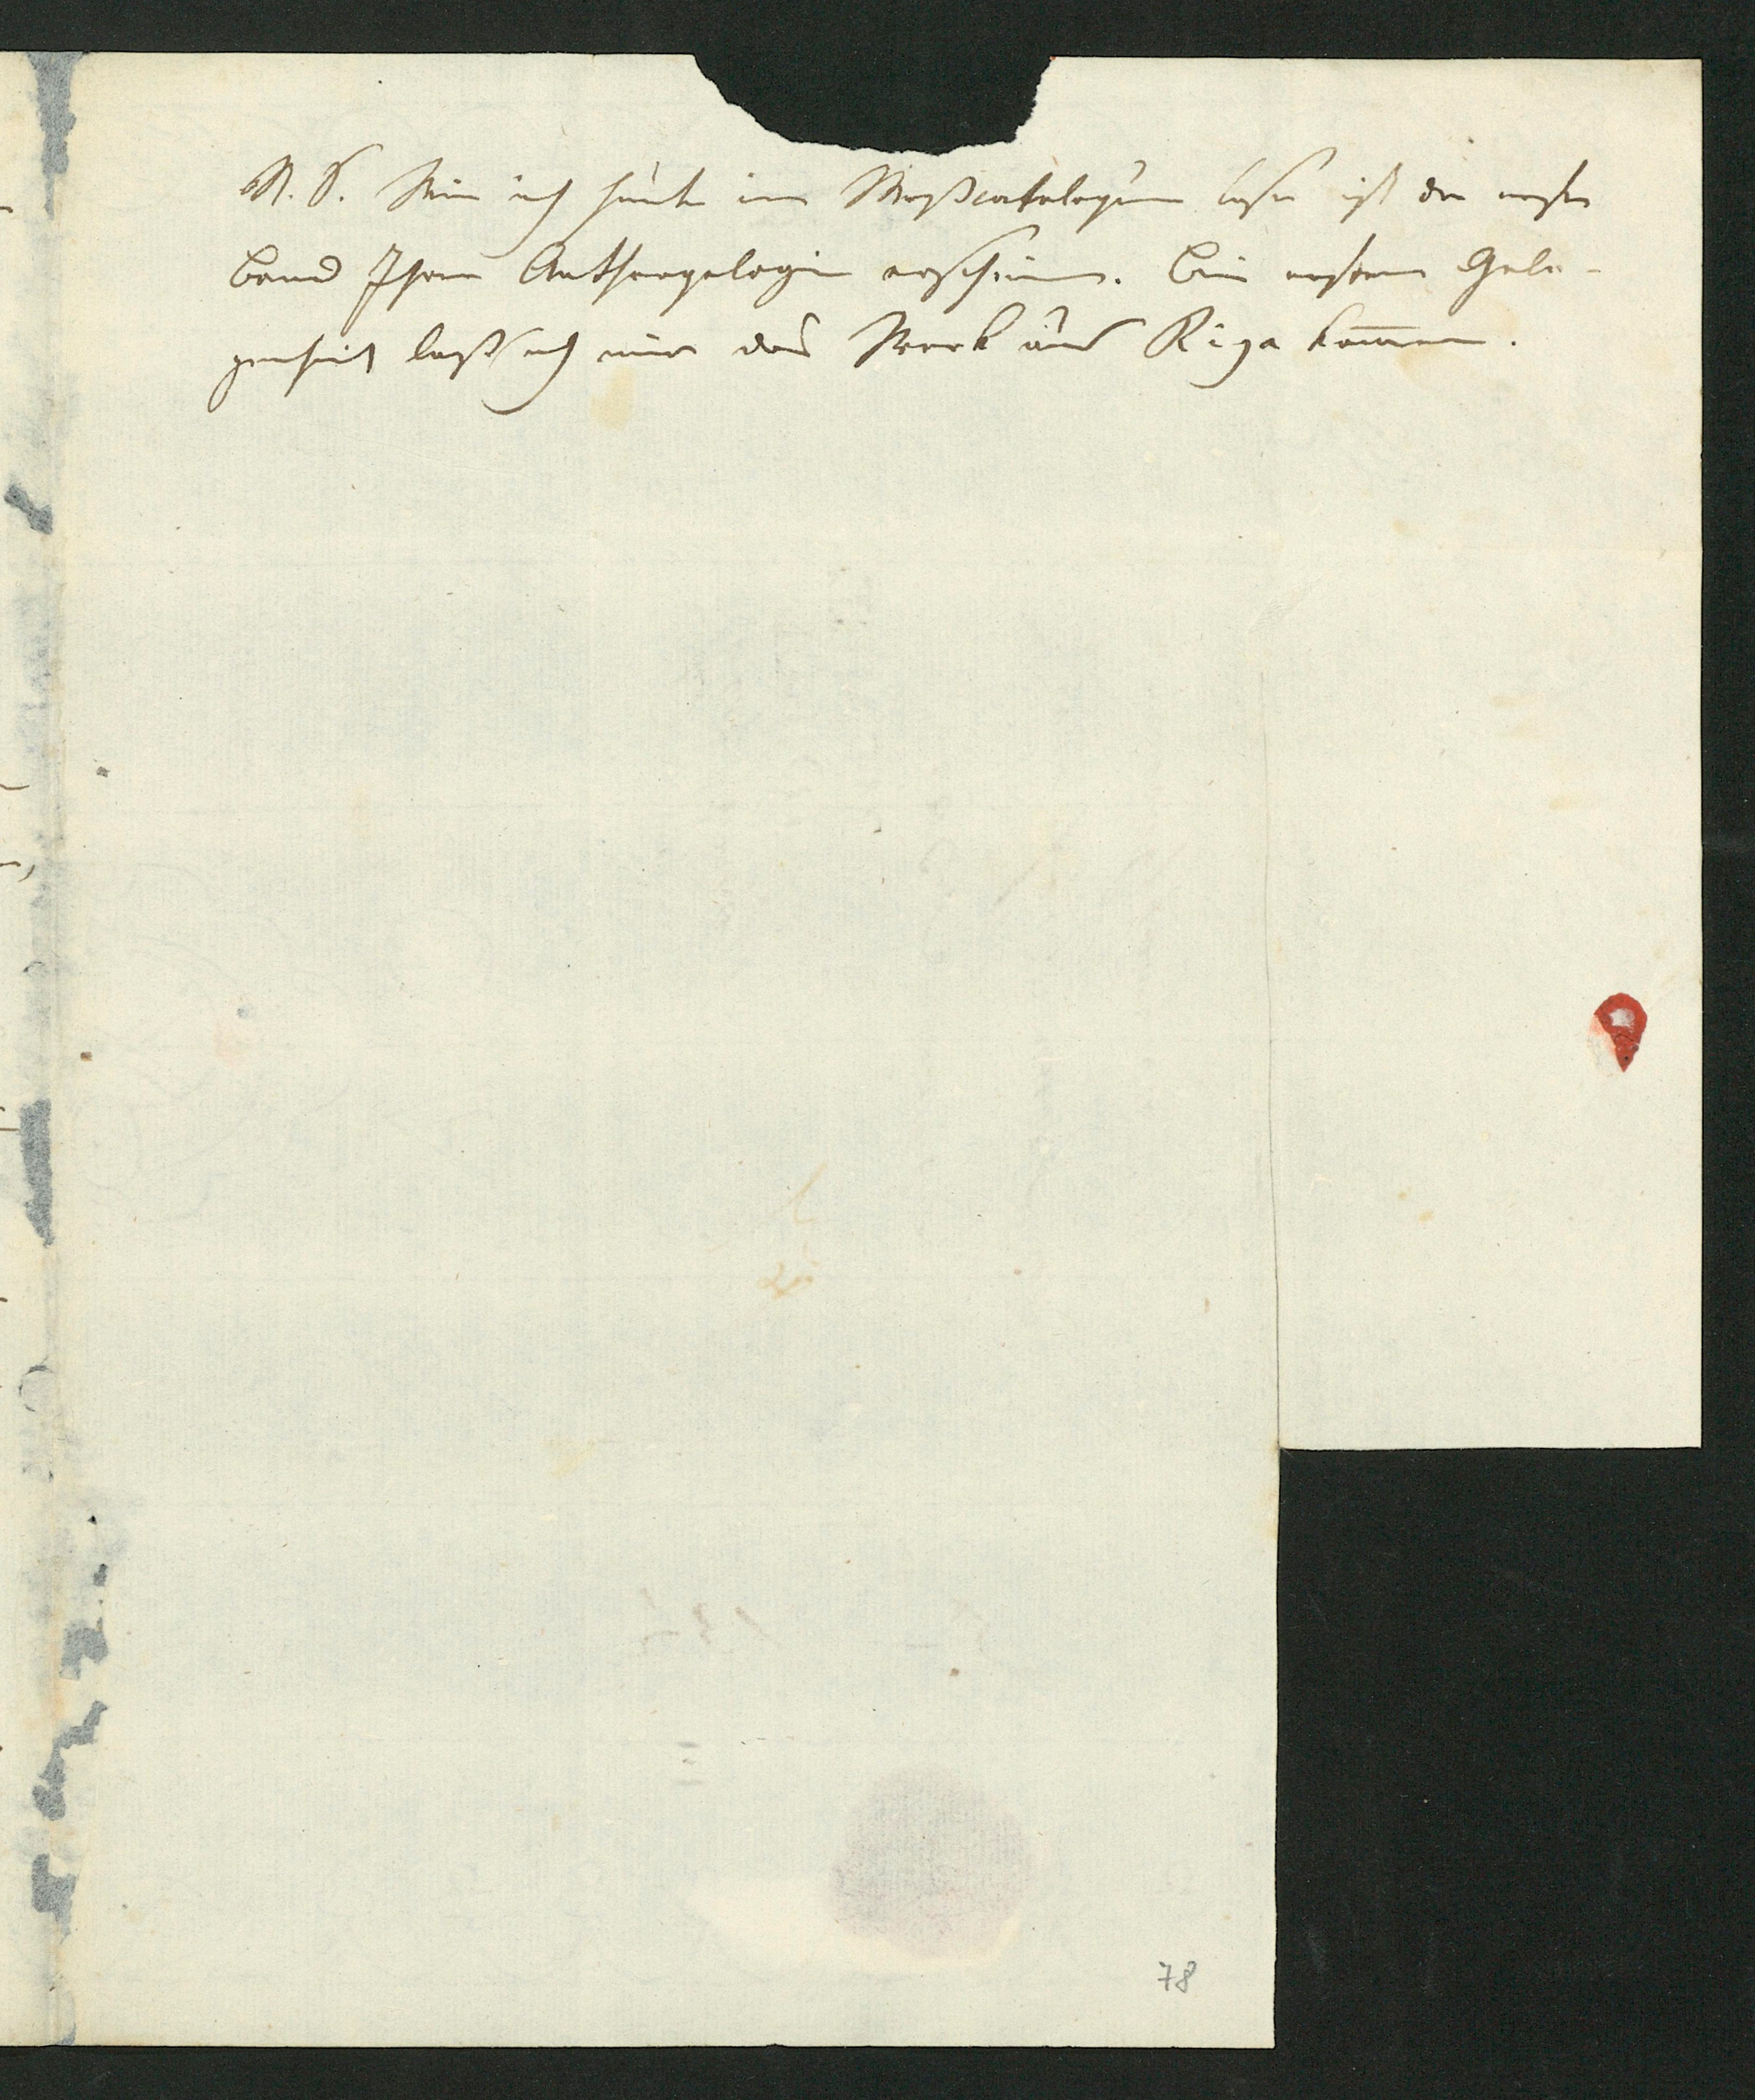 N. S. Wie ich heute im Meßcatalogus lese ist der erste
Band Ihrer Anthropologie erschienen. Bei erster Gele-
genheit lass ich mir das Werk aus Riga kom̅en.
78